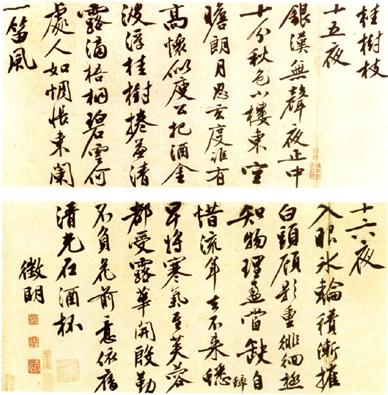 桂樹枝
十五夜
銀漢無聲夜正中
十分秋色小樓東空
瞻朗月思玄度誰有
高懷似庾公把酒金
波浮桂樹捲簾清
露滴梧桐碧雲何
處人如惆悵東闌
一笛風
十六夜
入眼冰輪積漸摧
白頭顧影重徘徊極
知物理盈當缺自
惜流年去不來
早將寒氣至芙蓉
都受露華開殷勤
不負花前意依舊
清光在酒杯
徵明